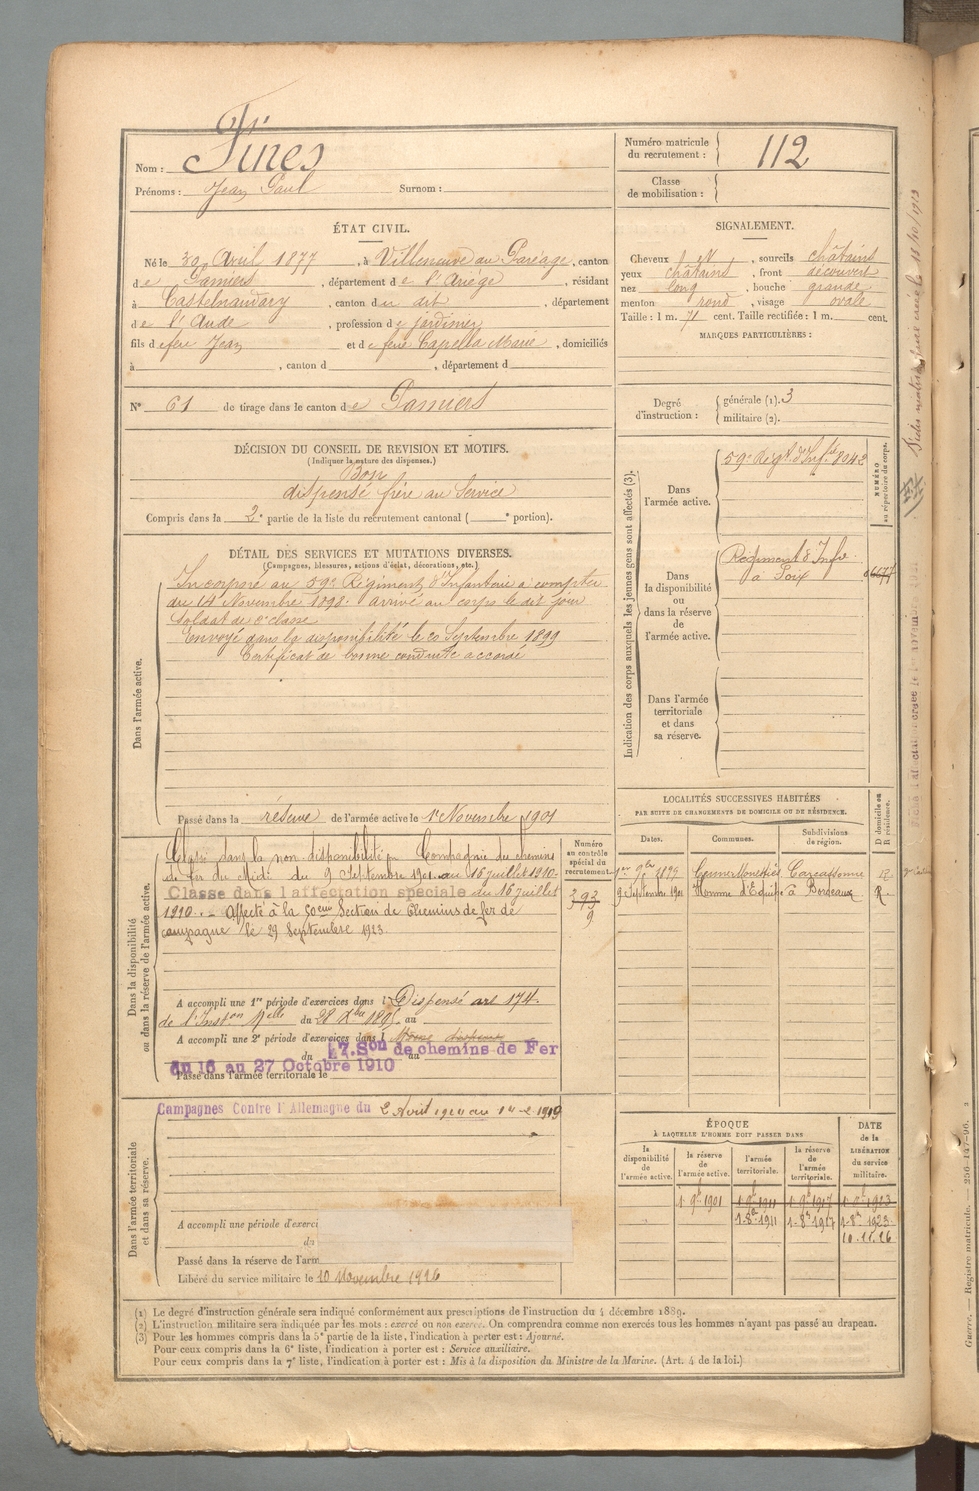 Nom : Fines
Prénoms : Jean Paul Surnom :
Numéro matricule
du recrutement : 112
Classe
de mobilisation :
ÉTAT CIVIL.
Né le 30 Avril 1877, à Villeneuve au Paréage, canton
de Pamiers, département de l'Ariége, résidant
à Castelnaudary, canton du dit, département
de l'Aude, profession de jardinier
fils de feu Jean et de feue Capella Marie, domiciliés
à , canton d , département d
N° 61 de tirage dans le canton de Pamiers
SIGNALEMENT.
Cheveux et, sourcils châtains
yeux châtains, front découvert
nez long, bouche grande
menton rond, visage ovale
Taille : 1 m. 71 cent. Taille rectifiée : 1 m. cent.
MARQUES PARTICULIÈRES :
Degré
d'instruction :
générale (1). 3
militaire (2).
DÉCISION DU CONSEIL DE REVISION ET MOTIFS.
(Indiquer la nature des dispenses.)
Bon
dispensé frère au Service
Compris dans la 2e partie de la liste du recrutement cantonal ( e portion).
DÉTAIL DES SERVICES ET MUTATIONS DIVERSES.
(Campagnes, blessures, actions d'éclat, décorations, etc.)
Dans l'armée active.
Incorporé au 59e Régiment d'Infanterie à compter
du 14 Novembre 1898. arrivé au corps le dit jour
Soldat de 2e classe
Envoyé dans la disponibilité le 20 Septembre 1899
Certificat de bonne conduite accordé
Passé dans la réserve de l'armée active le 1er Novembre 1901
Indication des corps auxquels les jeunes gens sont affectés (3).
NUMÉRO
au répertoire du corps.
Dans
l'armée active.
59e Régt d'Infie 8042
Dans
la disponibilité
ou
dans la réserve
de
l'armée active.
Régiment d'Infie
à Foix
Dans l'armée
territoriale
et dans
sa réserve.
Dans la disponibilité
ou dans la réserve de l'armée active.
Classé dans la non disponibilité Compagnie du chemins
de fer du Midi du 9 Septembre 1901 au 16 juillet 1910.
Classé dans l'affectation spéciale du 16 juillet
1910. - Affecté à la 50eme Section de Chemins de fer de
campagne le 29 Septembre 1923
Numéro
au contrôle
spécial du
recrutement.
393
9
A accompli une 1re période d'exercices dans l Dispensé art 174.
de l'Inston Melle du 28 Xbre 1895 au
A accompli une 2e période d'exercices dans l
du 17. Son de chemins de Fer au
du 16 au 27 Octobre 1910
Passé dans l'armée territoriale le
LOCALITÉS SUCCESSIVES HABITÉES
PAR SUITE DE CHANGEMENTS DE DOMICILE OU DE RÉSIDENCE.
Dates. Communes. Subdivisions
de région. D domicile ou
R résidence.
Carcassonne
9 Septembre 1901 Homme d'Equipe à Bordeaux R.
Dans l'armée territoriale
et dans sa réserve.
Campagnes Contre l'Allemagne du 2 Août 1914 au 1919
A accompli une période d'exerci
du
Passé dans la réserve de l'arm
Libéré du service militaire le 10 Novembre 1926
ÉPOQUE
À LAQUELLE L'HOMME DOIT PASSER DANS
DATE
de la
LIBÉRATION
du service
militaire.
la
disponibilité
de
l'armée active.
la réserve
de
l'armée active.
l'armée
territoriale.
la réserve
de
l'armée
territoriale.
1 9bre 1901 1 9bre 1911 1 9bre 1917 1 9bre 1923
1-8bre 1911 1-8bre 1917 1-8bre 1923
10.11.26
(1) Le degré d'instruction générale sera indiqué conformément aux prescriptions de l'instruction du 4 décembre 1889.
(2) L'instruction militaire sera indiquée par les mots : exercé ou non exercé. On comprendra comme non exercés tous les hommes n'ayant pas passé au drapeau.
(3) Pour les hommes compris dans la 5e partie de la liste, l'indication à porter est : Ajourné.
Pour ceux compris dans la 6e liste, l'indication à porter est : Service auxiliaire.
Pour ceux compris dans la 7e liste, l'indication à porter est : Mis à la disposition du Ministre de la Marine. (Art. 4 de la loi.)
Guerre. — Registre matricule. — 256-147-96.